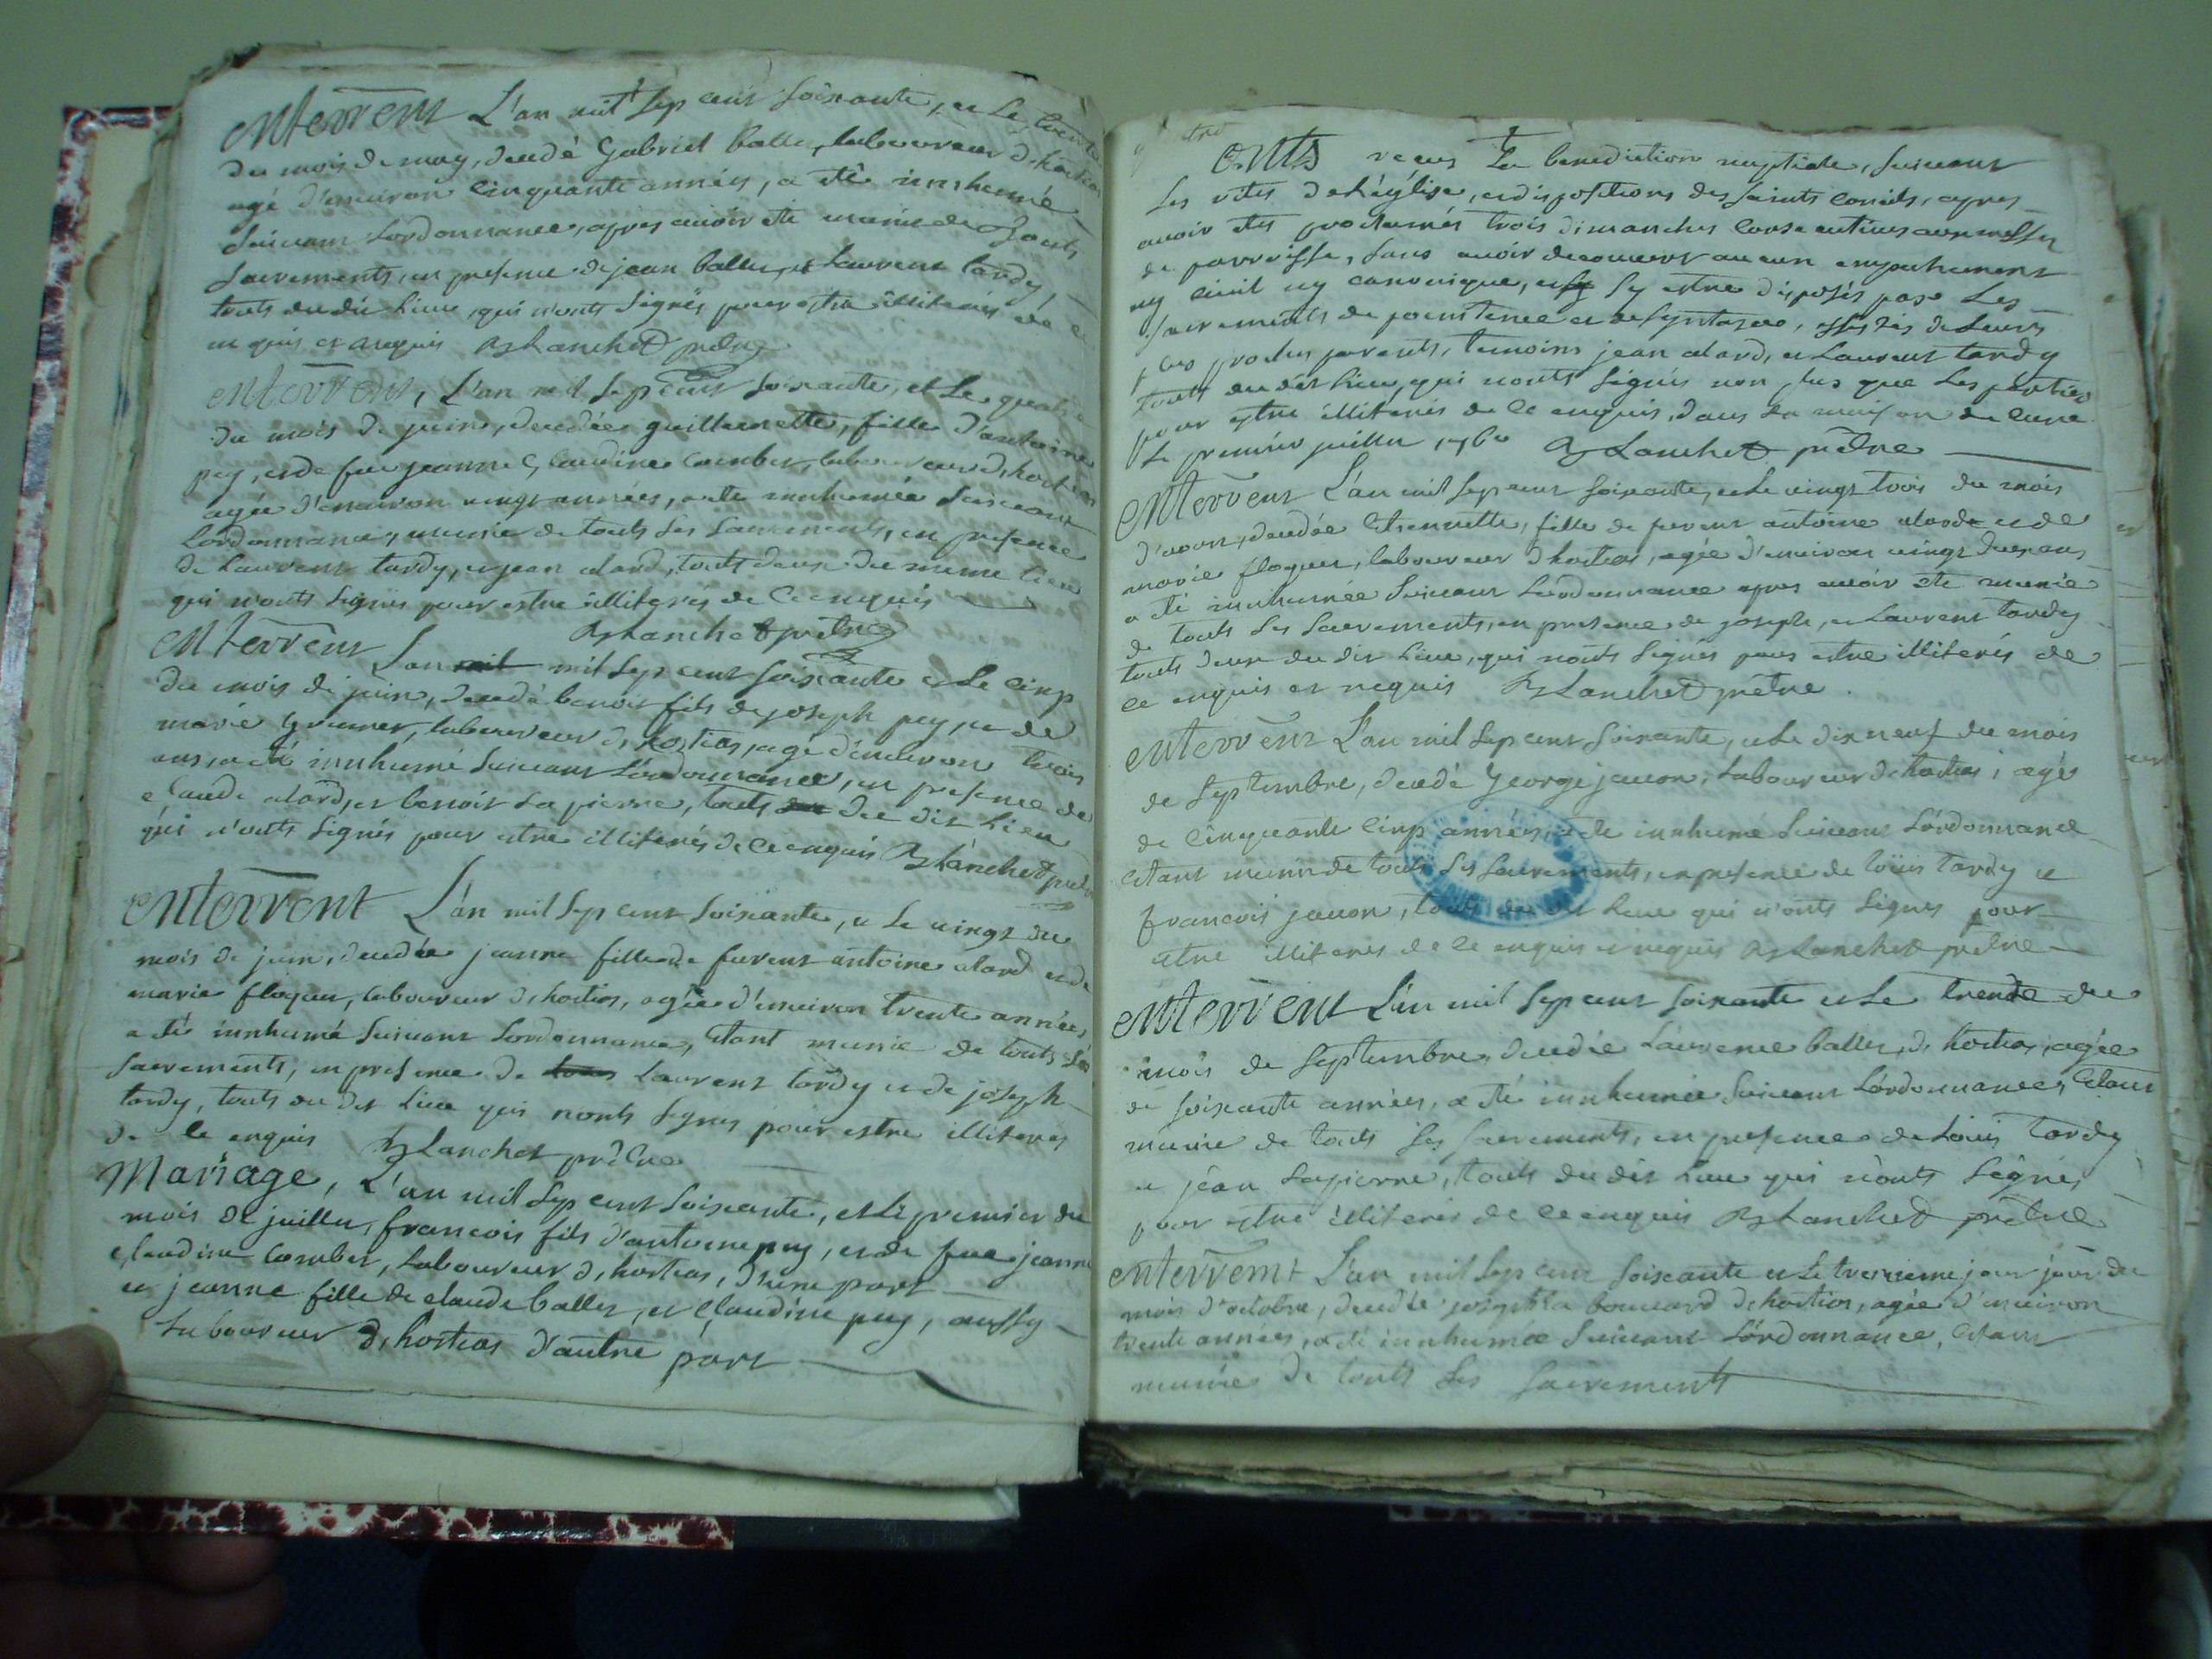 enterrem̄t L'an mil sep cent soixante, et le trente
du mois de may, decedé Gabriel baller, laboureur d'hostias
agé d'environ cinquante années, a été innhumé
suivant lordonnance, apres avoir eté munie de touts
sacrements, en presence de jean baller, et Laurent tardy,
touts du dit lieu, qui n'onts signés pour estre illiterés de ce
enquis et requis Blanchet prêtre
enterrem̄t, L'an mil sep cent soixante, et le quatre
du mois de juin, decedée guillemette, fille d'antoine
pey, et de fue jeanne Claudine comber, laboureur d'hostias
agée d'environ vingt années, a eté innhumée suivant
lordonnance, munie de touts ses sacrements, en presence
de Laurent tardy, et jean alard, touts deux du meme lieu
qui n'onts signés pour estre illiterés de ce enquis
Blanchet prêtre
enterrem̄t L'an mil sep cent soixante et le cinq
du mois de juin, decedé benoit fils de joseph pey, et de
marie laboureur d'hostias, agé d'environ trois
ans, a eté innhumé suivant lórdonnance, en presence de
claude alard, et benoit la pierre, touts du dit lieu
qui n'onts signés pour estre illiterés de ce enquis Blanchet prêtre
enterrem̄t L'an mil sep cent soixante, et le vingt du
mois de juin, decedée jeanne fille de fuvent antoine alard et de
marie floquer, laboureur d'hostias, agée d'environ trente années,
a eté innhumé suivant lordonnance, etant munie de touts ses
sacrements, en presence de Laurent tardy et de joseph
tardy, touts du dit lieu qui nonts signés pour estre illiterés
de ce enquis Blanchet prêtre
Mariage, L'an mil sep cent soixante, et le premier du
mois de juillet, francois fils d'antoine pey, et de fue jeanne
claudine comber, laboureur d'hostias, d'une part
et jeanne fille de claude baller, et claudine pey, aussy
laboureur d'hostias d'autre part
onts receus la benediction nuptiale, suivant
les rites de l'église, et dispositions des saints conciles, apres
avoir etés proclamés trois dimanches consecutives aux messes
de parroisse, sans avoir decouvert aucun empechement
ny civil ny canonique, et sy estre disposés par les
sacrements de penitence et assistés de leurs
plus proches parents, temoins jean alard, et Laurent tardy
touts du dit lieu, qui nonts signés non plus que les parties
pour estre illiterés de ce enquis, dans la maison de cure
le premier juillet 1760 Blanchet prêtre
enterrem̄t L'an mil sep cent soixante, et le vingt trois du mois
d'aoun, decedée etiennette, fille de fuvent antoine alard et de
marie floquer, laboureur d'hostias, agée d'environ vingt deux ans,
a eté innhumée suivant lórdonnance apres avoir eté munie
de touts ses sacrements, en presence de joseph, et Laurent tardy
touts deux du dit lieu, qui nonts signés pour estre illiterés de
ce enquis et requis Blanchet prêtre
enterrem̄t L'an mil sep cent soixante, et le dix neuf du mois
de septembre, decedé George jauon, laboureur d'hostias, agé
de cinquante cinq années, a eté innhumé suivant lórdonnance
etant munie de touts ses sacrements, en presence de loüis tardy et
francois jauon, touts du dit lieu qui n'onts signés pour
estre illiterés de ce enquis et requis Blanchet prêtre
enterrem̄t L'an mil sep cent soixante et le trente du
mois de septembre, decedée Laurence baller, d'hostias, agée
de soixante années, a eté innhumée suivant lórdonnance, etant
munie de touts ses sacrements, en presence de Loüis tardy
et jéan lapierre, touts du dit lieu qui n'onts signés,
pour estre illiterés de ce enquis Blanchet prêtre
enterrem̄t L'an mil sep cent soixante et le treizieme jour du
mois d'octobre, decedée josephta bouuard d'hostias, agée d'environ
trente années, a eté innhumée suivant lórdonnance, etant
munie de touts ses sacrements